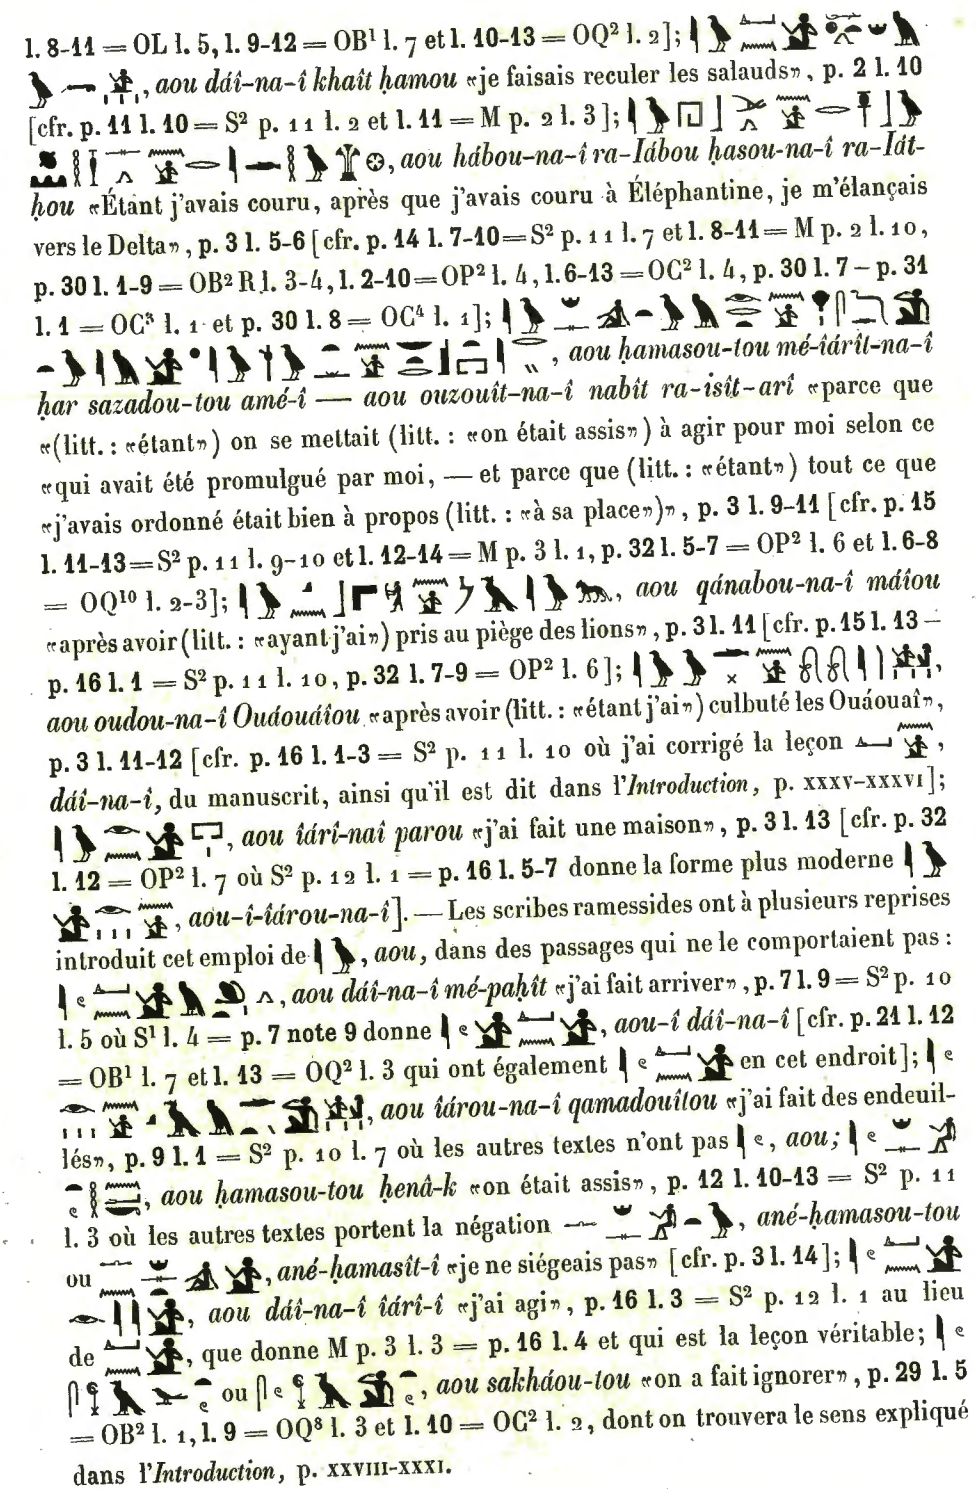 l. 8-11 = OL l. 5, l. 9-12 = OB¹ l. 7 et l. 10-13 = OQ² l. 2];
, aou dáî-na-î khaît ḥamou «je faisais reculer les salauds», p. 2 l. 10
[cfr. p. 11 l. 10 = S² p. 11 l. 2 et l. 11 = M p. 2 l. 3];
, aou hábou-na-î ra-Iábou ḥasou-na-î ra-Iát-
ḥou «Étant j'avais couru, après que j'avais couru à Éléphantine, je m'élançais
vers le Delta», p. 3 l. 5-6 [cfr. p. 14 l. 7-10 = S² p. 11 l. 7 et l. 8-11 = M p. 2 l. 10,
p. 30 l. 1-9 = OB² R l. 3-4, l. 2-10 = OP² l. 4, l. 6-13 = OC² l. 4, p. 30 l. 7 – p. 31
l. 1 = OC³ l. 1 et p. 30 l. 8 = OC⁴ l. 1];
, aou ḥamasou-tou mé-îárît-na-î
ḥar sazadou-tou amé-î — aou ouzouît-na-î nabît ra-isît-arî «parce que
«(litt. : «étant») on se mettait (litt. : «on était assis») à agir pour moi selon ce
«qui avait été promulgué par moi, — et parce que (litt. : «étant») tout ce que
«j'avais ordonné était bien à propos (litt. : «à sa place»)», p. 3 l. 9-11 [cfr. p. 15
l. 11-13 = S² p. 11 l. 9-10 et l. 12-14 = M p. 3 l. 1, p. 32 l. 5-7 = OP² l. 6 et l. 6-8
= OQ¹⁰ l. 2-3]; , aou qánabou-na-î máîou
«après avoir (litt. : «ayant j'ai») pris au piège des lions», p. 3 l. 11 [cfr. p. 15 l. 13 –
p. 16 l. 1 = S² p. 11 l. 10, p. 32 l. 7-9 = OP² l. 6]; ,
aou oudou-na-î Ouáouáîou «après avoir (litt. : «étant j'ai») culbuté les Ouáouaî»,
p. 3 l. 11-12 [cfr. p. 16 l. 1-3 = S² p. 11 l. 10 où j'ai corrigé la leçon ,
dáî-na-î, du manuscrit, ainsi qu'il est dit dans l'Introduction, p. XXXV-XXXVI];
, aou îárî-naî parou «j'ai fait une maison», p. 3 l. 13 [cfr. p. 32
l. 12 = OP² l. 7 où S² p. 12 l. 1 = p. 16 l. 5-7 donne la forme plus moderne
, aou-î-îárou-na-î]. — Les scribes ramessides ont à plusieurs reprises
introduit cet emploi de , aou, dans des passages qui ne le comportaient pas :
, aou dáî-na-î mé-paḥît «j'ai fait arriver», p. 7 l. 9 = S² p. 10
l. 5 où S¹ l. 4 = p. 7 note 9 donne , aou-î dáî-na-î [cfr. p. 21 l. 12
= OB¹ l. 7 et l. 13 = OQ² l. 3 qui ont également en cet endroit];
, aou îárou-na-î qamadouîtou «j'ai fait des endeuil-
lés», p. 9 l. 1 = S² p. 10 l. 7 où les autres textes n'ont pas , aou;
, aou ḥamasou-tou ḥenâ-k «on était assis», p. 12 l. 10-13 = S² p. 11
l. 3 où les autres textes portent la négation , ané-ḥamasou-tou
ou , ané-ḥamasît-î «je ne siégeais pas» [cfr. p. 3 l. 14];
, aou dáî-na-î îárî-î «j'ai agi», p. 16 l. 3 = S² p. 12 l. 1 au lieu
de , que donne M p. 3 l. 3 = p. 16 l. 4 et qui est la leçon véritable;
ou , aou sakháou-tou «on a fait ignorer», p. 29 l. 5
= OB² l. 1, l. 9 = OQ⁸ l. 3 et l. 10 = OC² l. 2, dont on trouvera le sens expliqué
dans l'Introduction, p. XXVIII-XXXI.